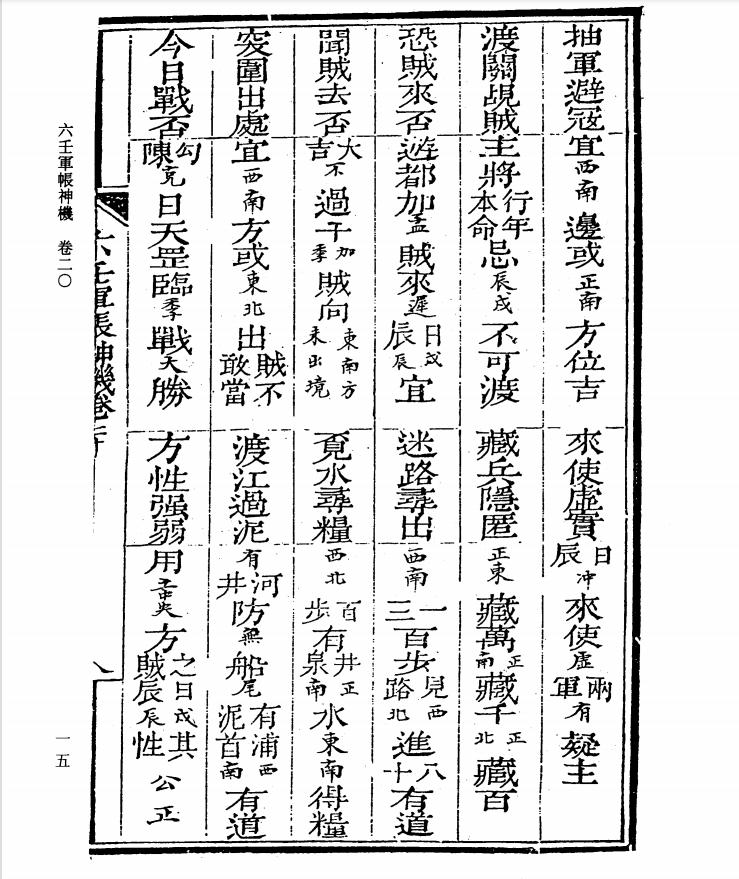 抽軍避冦宜西南邊或正南方位吉
來使虛實日辰冲來使虛兩軍有疑主
渡關覘賊主將行年本命忌辰戌不可渡
藏兵隱匿正東藏萬正南藏千正北藏百
恐賊來否遊都加孟賊來遲日戌辰辰宜
迷路尋出西南一三百步見西路北進八十有道
聞賊去否大吉不過干加季賊向東南方未出境
覓水尋糧西北百步有井正泉南水東南得糧
突圍出處宜西南方或東北出賊不敢當
渡江過泥有河井防無船尾有浦西泥首南有道
今日戰否勾陳克日天罡臨季戰大勝
方性强弱用方之日戌賊辰辰其性公正
六壬軍帳神機卷二十
八
六壬軍帳神機 卷二〇
一五